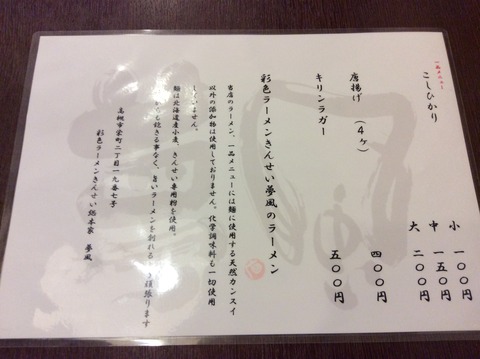 一品メニュー
こしひかり
小 一〇〇円
中 一五〇円
大 二〇〇円
唐揚げ (4ヶ) 四〇〇円
キリンラガー 五〇〇円
彩色ラーメンきんせい夢風のラーメン
当店のラーメン、一品メニューには麺に使用する天然カンスイ
以外の添加物は使用しておりません。化学調味料も一切使用
していません。
麺は北海道産小麦、きんせい専用粉を使用。
いつも飽きる事なく、旨いラーメンを創れるよう頑張ります
高槻市栄町二丁目一九番七号
彩色ラーメンきんせい総本家 夢風